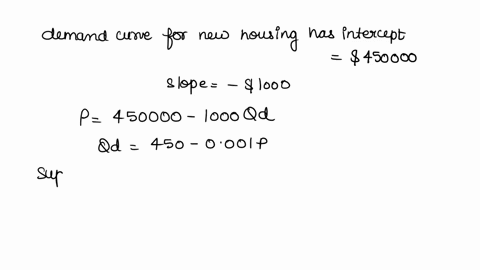 demand curve for new housing has intercept
= $450000
slope = - $1000
P = 450000 - 1000Qd
Qd = 450 - 0.001P
Sup